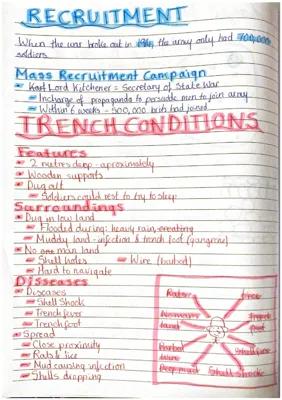 RECRUITMENT
When the war broke out in 1914, the army only had 700,000
soldiers
Mass Recruitment Campaign
Lord Kitchener = Secretary of State War
Incharge of propaganda to persuade men to join army
Within 6 weeks - 500,000 brits had joined
TRENCH CONDITIONS
Features
2 metres deep - aproximately
Wooden supports
Dug out
Soldiers could rest to try to sleep
Surroundings
Dug in low land
Flooded during heavy rain, creating
Muddy land - infection & trench foot (gangrene)
No one man land
Shell holes Wire (barbed)
Hard to navigate
Disseases
Diseases
Shell Shock
Trench fever
Trench foot
Spread
Close proximity
Rats & lice
Mud causing infection
Shells dropping
Rats
Lice
No mans
land
Trench
foot
Barbed
wire
Deep mud
Shell shock